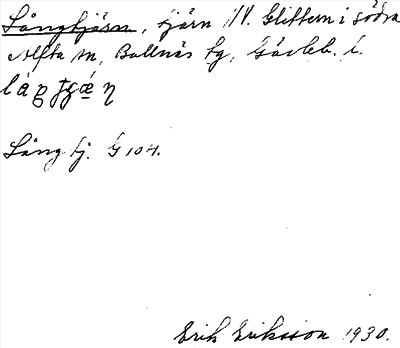 Långtjärn, tjärn NV. Glittern i södra
Alfta sn, Bollnäs tg, Gävleb. l.
Lång tj. G 104.
Erik Eriksson 1930.